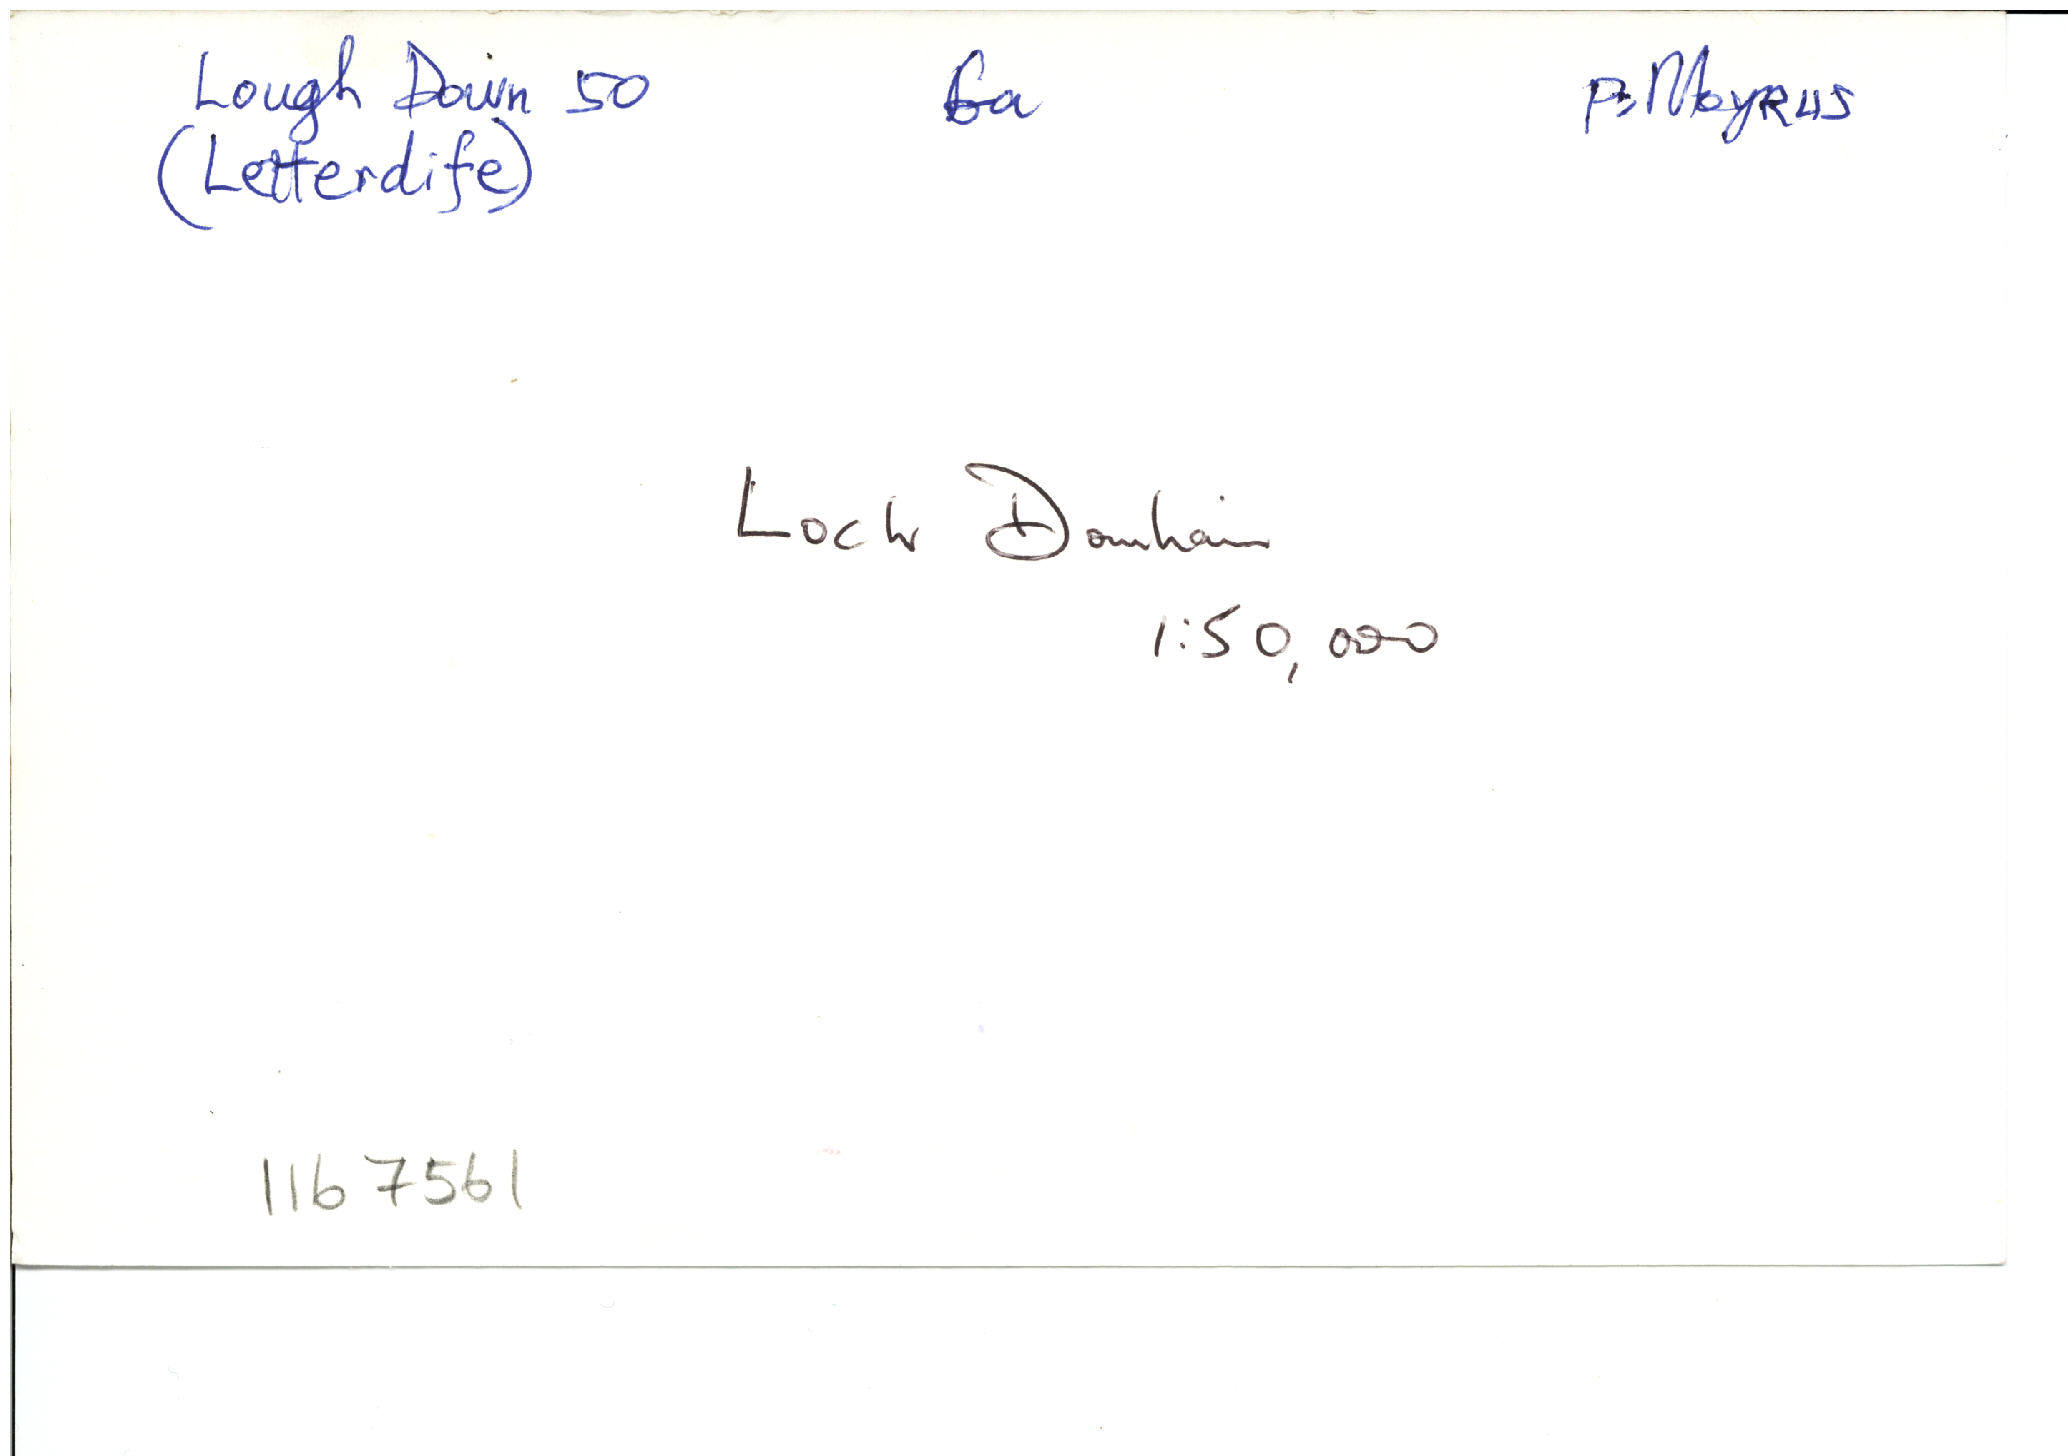 Lough Down 50 Ga P. Moyrus
(Letterdife)
Loch Domhain
1:50,000
1167561